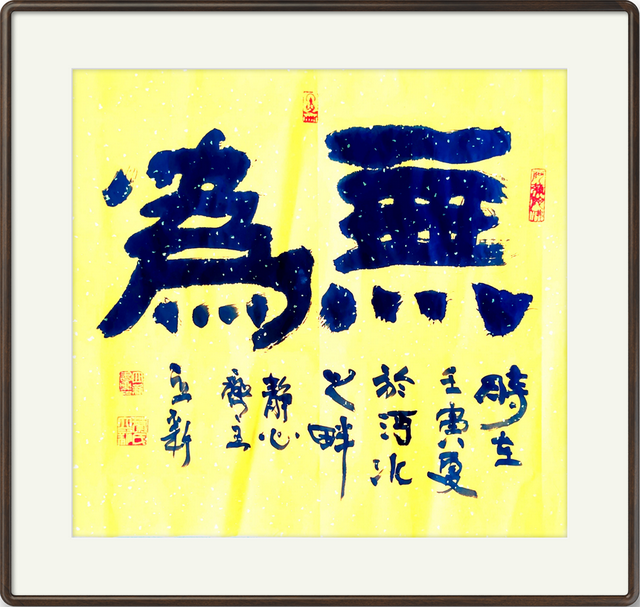 無為
時在
壬寅夏
於河北
之畔
靜心
齋主
立新